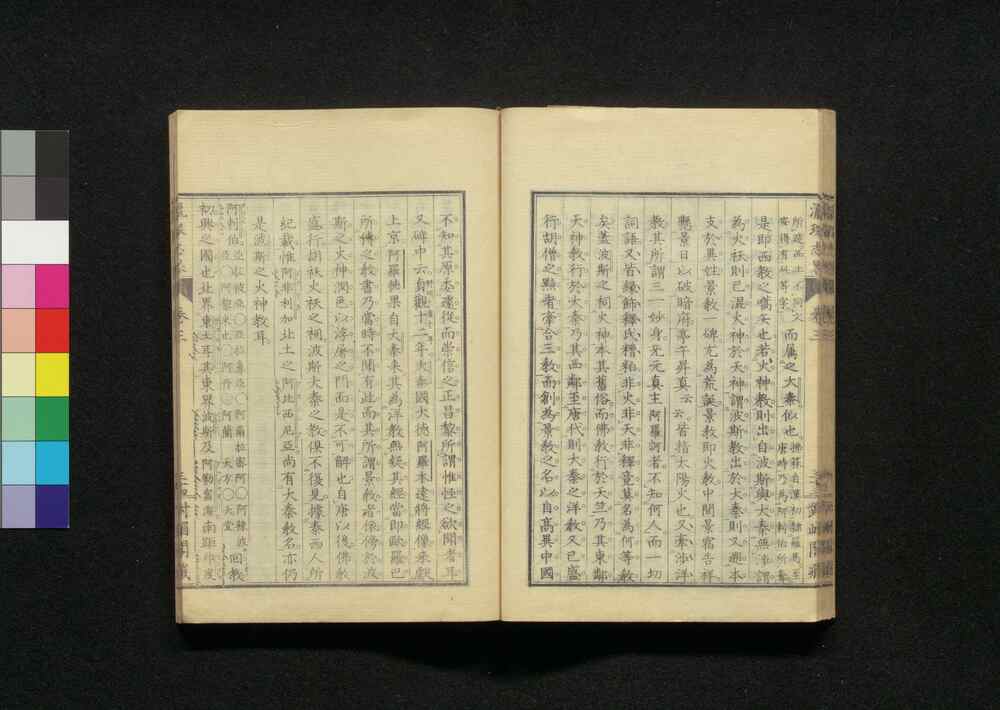 所建西土不同文
安得有此等字
而屬之大秦似也
是即西教之嚆矢也若火神教則出自波斯與大秦無涉謂
為火祆則已混火神於天神謂波斯教出於大秦則又遡本
支於異姓景教一碑尤為荒誕景教即火教中間景宿告祥
懸景日以破暗府亭午昇真云云皆指太陽火也又牽涉洋
教其所謂三一妙身无元真主阿羅訶者不知何人而一切
詞語又皆緣飾釋氏糟粕非火非天非釋竟莫名為何等教
矣蓋波斯之祠火神本其舊俗而佛教行於天竺乃其東鄰
天神教行於大秦乃其西鄰至唐代則大秦之洋教又已盛
行胡僧之黠者牽合三教而創為景教之名以自高異中國
不知其原委遂從而崇信之正昌黎所謂惟怪之欲聞者耳
又碑中云貞觀十二年大秦國大德阿羅本遠將經像來獻
上京阿羅彼果自大秦來其為洋教無疑其經當即歐羅巴
所傳之教書乃當時不聞有此而其所謂景教者依傍於波
斯之火神潤色以浮屠之門面是不可解也自唐以後佛教
盛行胡祆火祆之祠波斯大秦之教俱不復見據泰西人所
紀載惟阿非利加北土之阿比西尼亞尚有大秦教名亦仍
是波斯之火神教耳
阿剌伯
回教
初興之國也北界東土耳其東界波斯及阿勒富海南距印度